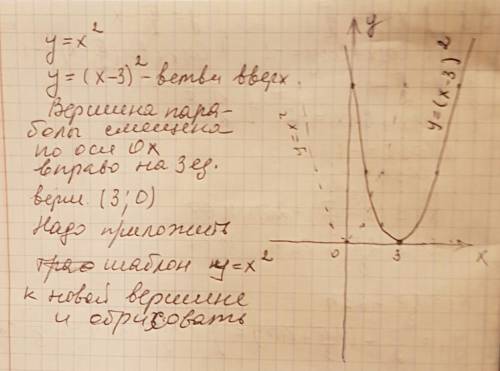 y = x²
y = (x-3)² - ветви вверх.
Вершина пара-
болы смещена
по оси OX
вправо на 3 ед.
верш. (3; 0)
Надо приложить
шаблон y = x²
к новой вершине
и обрисовать
y
y = x²
y = (x-3)²
0
3
X